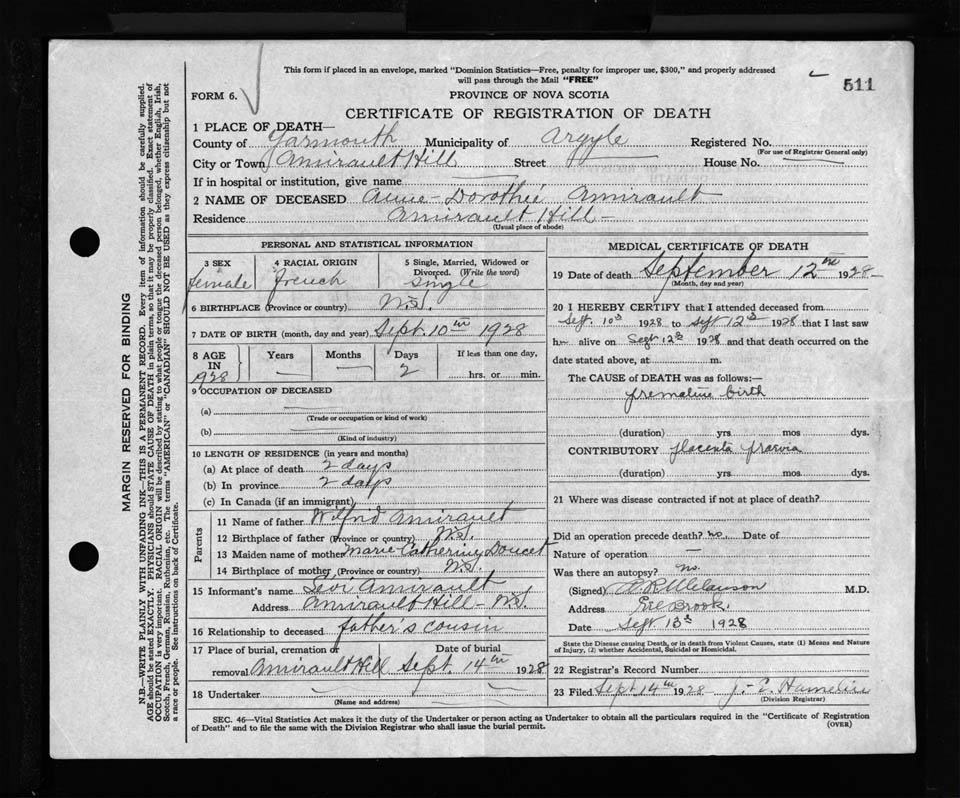 This form if placed in an envelope, marked "Dominion Statistics—Free, penalty for improper use, $300," and properly addressed
will pass through the Mail "FREE"
511
FORM 6.
PROVINCE OF NOVA SCOTIA
CERTIFICATE OF REGISTRATION OF DEATH
1 PLACE OF DEATH—
County of Yarmouth Municipality of Argyle Registered No.
(For use of Registrar General only)
City or Town Amirault Hill Street House No.
If in hospital or institution, give name
2 NAME OF DECEASED Anne-Dorothée Amirault
Residence Amirault Hill -
(Usual place of abode)
PERSONAL AND STATISTICAL INFORMATION
3 SEX 4 RACIAL ORIGIN 5 Single, Married, Widowed or
Divorced. (Write the word)
female french single
6 BIRTHPLACE (Province or country) N.S.
7 DATE OF BIRTH (month, day and year) Sept. 10th 1928
8 AGE IN Years Months Days If less than one day,
1928 — — 2 hrs. or min.
9 OCCUPATION OF DECEASED
(a)
(Trade or occupation or kind of work)
(b)
(Kind of industry)
10 LENGTH OF RESIDENCE (in years and months)
(a) At place of death 2 days
(b) In province 2 days
(c) In Canada (if an immigrant)
Parents
11 Name of father Wilfrid Amirault
12 Birthplace of father (Province or country) N.S.
13 Maiden name of mother Marie Catherine Doucet
14 Birthplace of mother (Province or country) N.S.
15 Informant's name Lévi Amirault
Address Amirault Hill - N.S.
16 Relationship to deceased father's cousin
17 Place of burial, cremation or Date of burial
removal Amirault Hill Sept. 14th 1928
18 Undertaker
(Name and address)
MEDICAL CERTIFICATE OF DEATH
19 Date of death September 12th 1928
(Month, day and year)
20 I HEREBY CERTIFY that I attended deceased from
Sept. 10th 1928 to Sept 12th 1928 that I last saw
h alive on Sept 12th 1928 and that death occurred on the
date stated above, at m.
The CAUSE of DEATH was as follows:—
premature birth
(duration) yrs mos dys.
CONTRIBUTORY placenta praevia
(duration) yrs mos dys.
21 Where was disease contracted if not at place of death?
Did an operation precede death? no. Date of
Nature of operation —
Was there an autopsy? no.
(Signed) M.D.
Address Eel Brook.
Date Sept 13th 1928
State the Disease causing Death, or in death from Violent Causes, state (1) Means and Nature
of Injury, (2) whether Accidental, Suicidal or Homicidal.
22 Registrar's Record Number
23 Filed Sept 14th 1928
(Division Registrar)
SEC. 46—Vital Statistics Act makes it the duty of the Undertaker or person acting as Undertaker to obtain all the particulars required in the "Certificate of Registration
of Death" and to file the same with the Division Registrar who shall issue the burial permit.
(OVER)
MARGIN RESERVED FOR BINDING
N.B.—WRITE PLAINLY WITH UNFADING INK—THIS IS A PERMANENT RECORD. Every item of information should be carefully supplied.
AGE should be stated EXACTLY. PHYSICIANS should STATE CAUSE OF DEATH in plain terms, so that it may be properly classified. Exact statement of
OCCUPATION is very important. RACIAL ORIGIN will be described by stating to what people or tongue the deceased person belonged, whether English, Irish,
Scotch, French, German, Russian, Ruthenian, etc. The terms "AMERICAN" or "CANADIAN" SHOULD NOT BE USED as they express citizenship but not
a race or people. See instructions on back of Certificate.